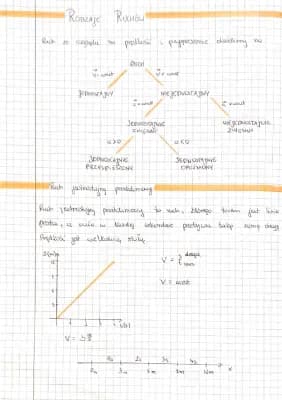 Rodzaje Ruchów
Ruch ze względu na prędkość i przyspieszenie dzielimy na
RUCH
V = const V ≠ const
JEDNOSTAJNY NIEJEDNOSTAJNY
a = const a ≠ const
JEDNOSTAJNIE ZMIENNY
NIEJEDNOSTAJNIE ZMIENNY
a>0 a<0
JEDNOSTAJNIE PRZYSPIESZONY
JEDNOSTAJNIE OPÓŹNIONY
Ruch jednostajny prostoliniowy
Ruch jednostajny prostoliniowy to ruch, którego torem jest linia
prosta, a ciało w każdej sekundzie przebywa taką samą drogę
Prędkość jest wielkością stałą
S(m)
V = droga
czas
V = const
t(s)